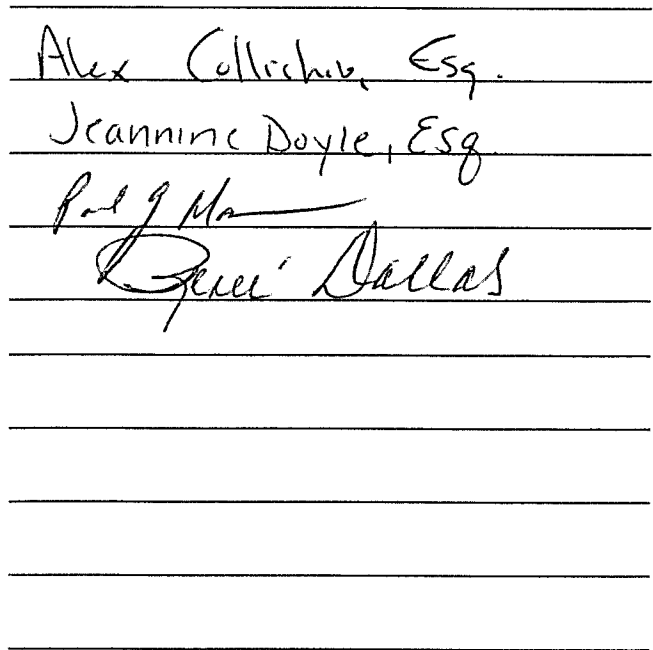 Alex Collichio, Esq.
Jeannine Doyle, Esq
Paul J
René Dallas